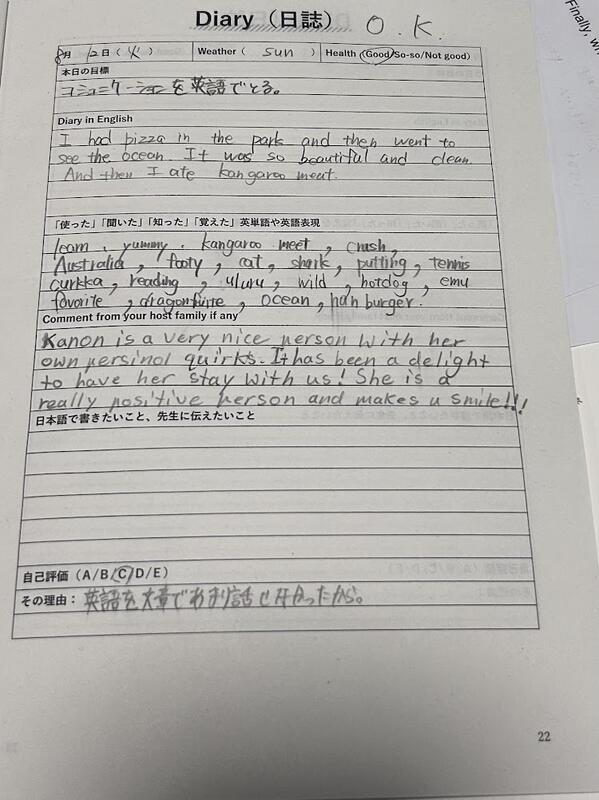 Diary（日誌） O.K.
8月 12日（火） Weather（ sun ） Health (Good/So-so/Not good)
本日の目標
コミュニケーションを英語でとる。
Diary in English
I had pizza in the park and then went to
see the ocean. It was so beautiful and clean.
And then I ate kangaroo meat.
「使った」「聞いた」「知った」「覚えた」英単語や英語表現
learn, yummy, kangaroo meet, crush,
Australia, footy, cat, shark, putting, tennis
curkka, reading, uluru, wild, hotdog, emu
favorite, dragonfurite, ocean, han burger.
Comment from your host family if any
Kanon is a very nice person with her
own persinol quirks. It has been a delight
to have her stay with us! She is a
really positive person and makes u smile!!!
日本語で書きたいこと、先生に伝えたいこと
自己評価（A/B/C/D/E）
その理由： 英語を文章であまり話せなかったから。
22
Finally, wh